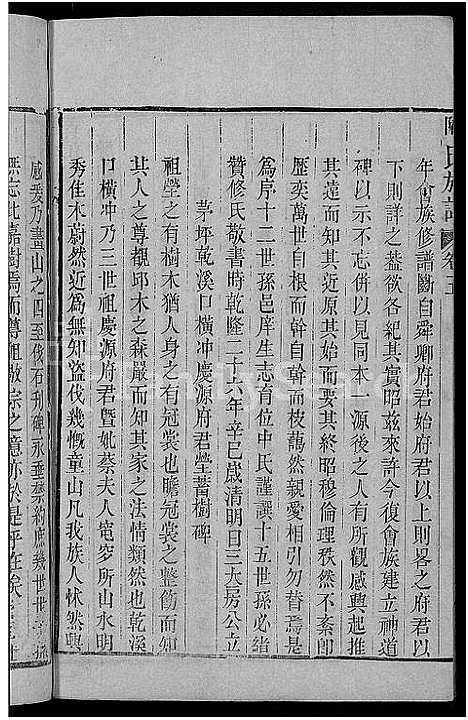 氏族譜 卷五
年會族修譜斷自舜卿府君始府君以上則畧之府君以
下則詳之蓋欲各紀其實昭茲來許今復會族建立神道
碑以示不忘併以見同本一源後之子孫有所觀感興起推
其遠而知其近原其始而要其終昭穆倫理秩然不紊卽
歷奕萬世自根而幹自幹而枝藹然親愛相引勿替焉是
為序十二世孫邑庠生志育位中氏謹譔十五世孫必緒
贊修氏敬書時乾隆二十六年辛巳歲清明日三大房公立
茅坪乾溪口橫冲慶源府君塋蓄樹碑
祖塋之有樹木猶人身之有冠裳也瞻冠裳之整飭而知
其人之尊觀邱木之森嚴而知其家之法情類然也乾溪
口橫冲乃三世祖慶源府君暨妣蔡夫人窀穸所山水明
秀佳木蔚然近為無知盜伐幾慨童山凡我族人怵然興
感爰乃畫山之四至伐石刋碑永垂禁約庶幾世世子孫
無忘此嘉樹焉而尊祖敬宗之意亦於是乎在矣